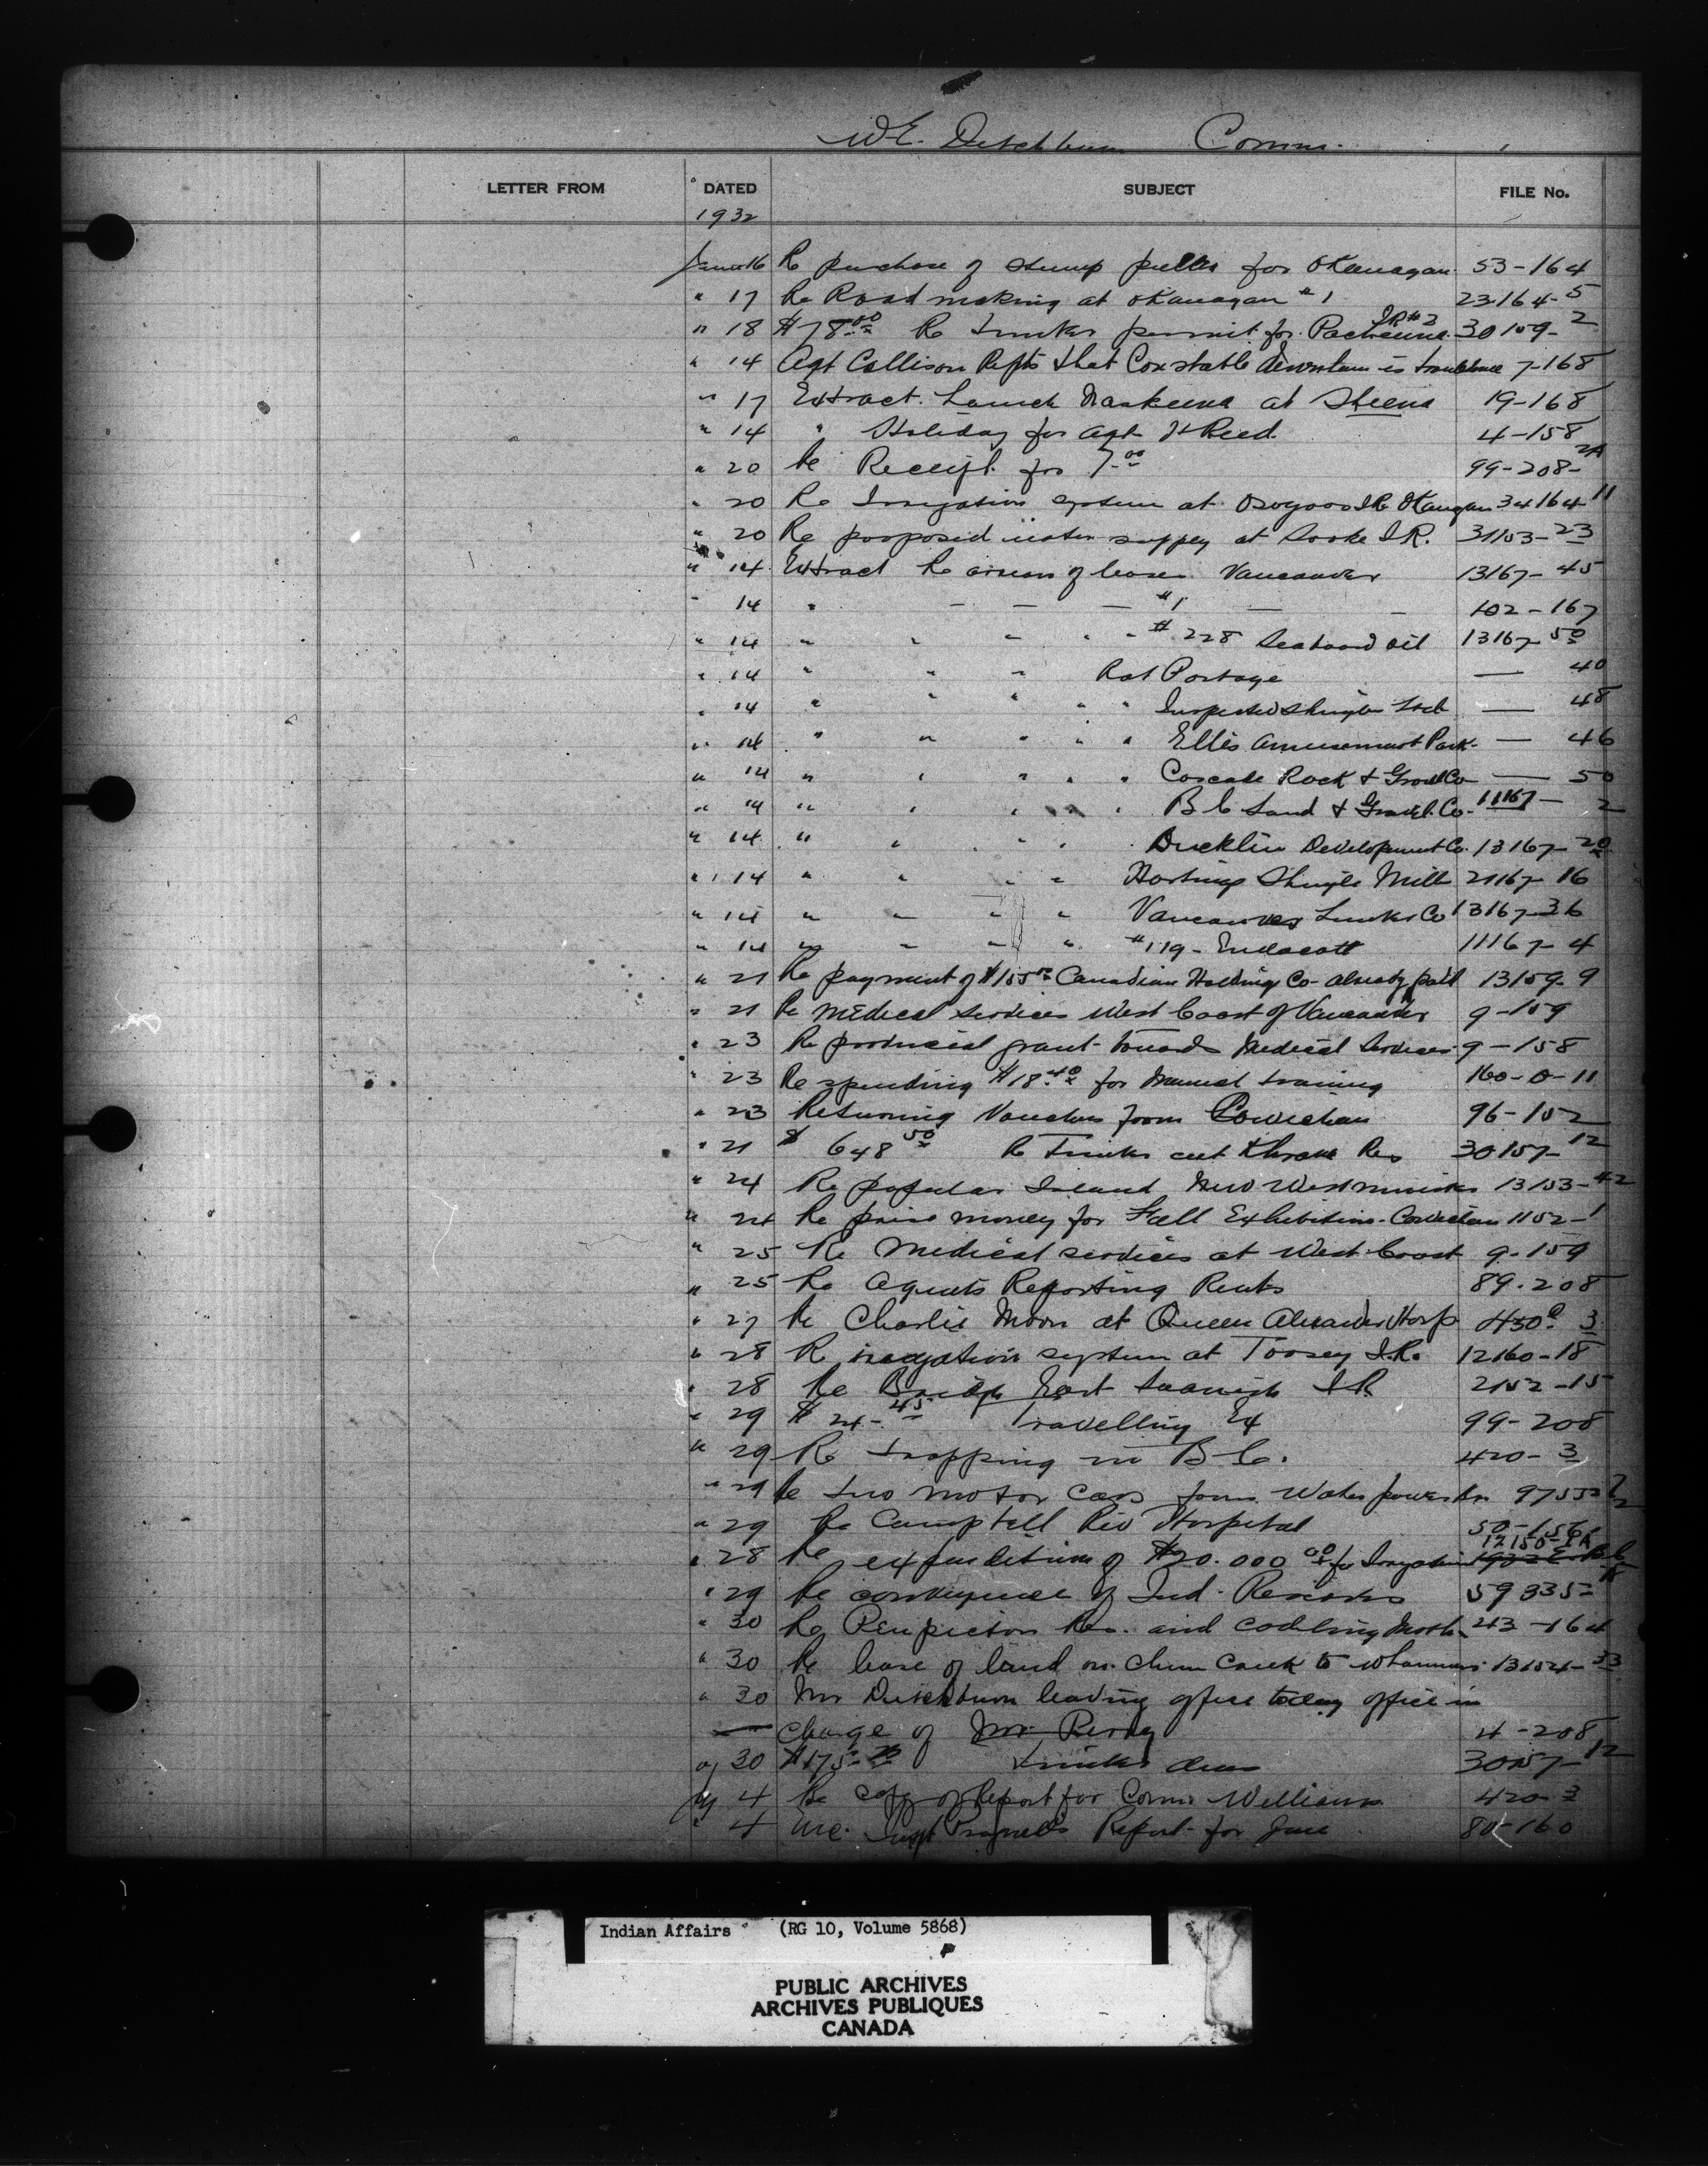 W.E. Ditchburn Comm.
LETTER FROM DATED SUBJECT FILE No.
1932
June 16 Re purchase of stump puller for Okanagan 53-164
" 17 Re Road making at Okanagan #1 23164-5
" 18 $78.00 Re timber permit for Pacheena I.R #2 30159-2
" 14 Agt Collison Repts that Constable is 7-168
" 17 Extract. Launch Naskeena at Skeena 19-168
" 14 " Holiday for Agt H Reed 4-158
" 20 Re Receipt for 7.00 99-208-2A
" 20 Re Irrigation system at Osoyoos I.R. Okangan 34164-11
" 20 Re proposed water supply at Sooke I.R. 31153-23
" 14 Extract Re arrears of leases Vancouver 13167-45
" 14 " #1 102-167
" 14 " " " " " #228 Seaboard Oil 13167-50
" 14 " " " Rat Portage — 40
" 14 " " " " " Shingle — 48
" 14 " " " " " Ellis Amusement Park — 46
" 14 " " " " " Cascade Rock & Gravel Co — 50
" 14 " " " " " B C Sand & Gravel Co. 11167-2
" 14 " " " " Development Co. 13167-20
" 14 " " " " Hastings Shingle Mill 21167-16
" 14 " " " " Vancouver Co 13167-36
" 14 " " " " #119 - Endacott 11167-4
" 21 Re payment of $155 Canadian Holding Co - already paid 13159-9
" 21 Re Medical Services West Coast of Vancouver 9-159
" 23 Re provincial grant towards Medical Services 9-158
" 23 Re spending $18.40 for Manual training 160-0-11
" 23 Returning Vouchers from Cowichan 96-152
" 21 $648.50 Re Timber cut Res 30157-12
" 24 Re poplar Island New Westminster 13153-42
" 24 Re prize money for Fall Exhibition - Cowichan 1152-1
" 25 Re Medical services at West Coast 9-159
" 25 Re Agents Reporting Rents 89-208
" 27 Re Charlie Moon at Queen Alexandra Hosp 3
" 28 Re irrigation system at Toosey I.R. 12160-18
" 28 Re Bridge East Saanich I.R. 2152-15
" 29 $24.45 Travelling Ex 99-208
" 29 Re trapping in B C. 420-3
" 29 Re two motor cars from Water power Br. 97552
" 29 Re Campbell Riv Hospital 50-156
" 28 Re expenditure of $20.000.00 for Irrigation 12150-1A
" 29 Re conveyance of Ind. Reserves 59335-
" 30 Re Penticton Res. and codling Moth 43-164
" 30 Re lease of land on Chum Creek to 13154-33
" 30 Mr Ditchburn leaving office today office in
— charge of Mr Perry 4-208
" 30 $175 timber dues 30157-12
July 4 Re copy of Report for Comr Williams 420-3
" 4 Enc. Report for June 80-160
Indian Affairs (RG 10, Volume 5868)
PUBLIC ARCHIVES
ARCHIVES PUBLIQUES
CANADA